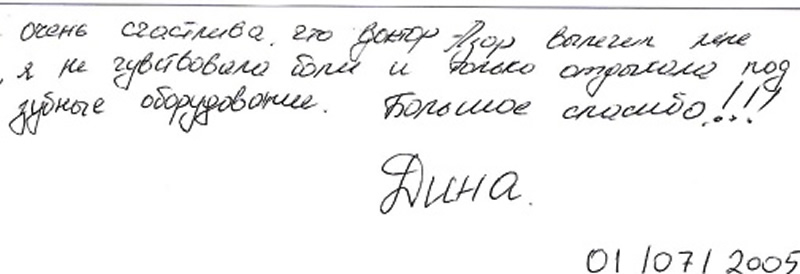 очень счастлива, что доктор Азар вылечил мне
, я не чувствовала боли и только отдыхала под
зубные оборудование. Большое спасибо!!!
Дина.
01/07/2005